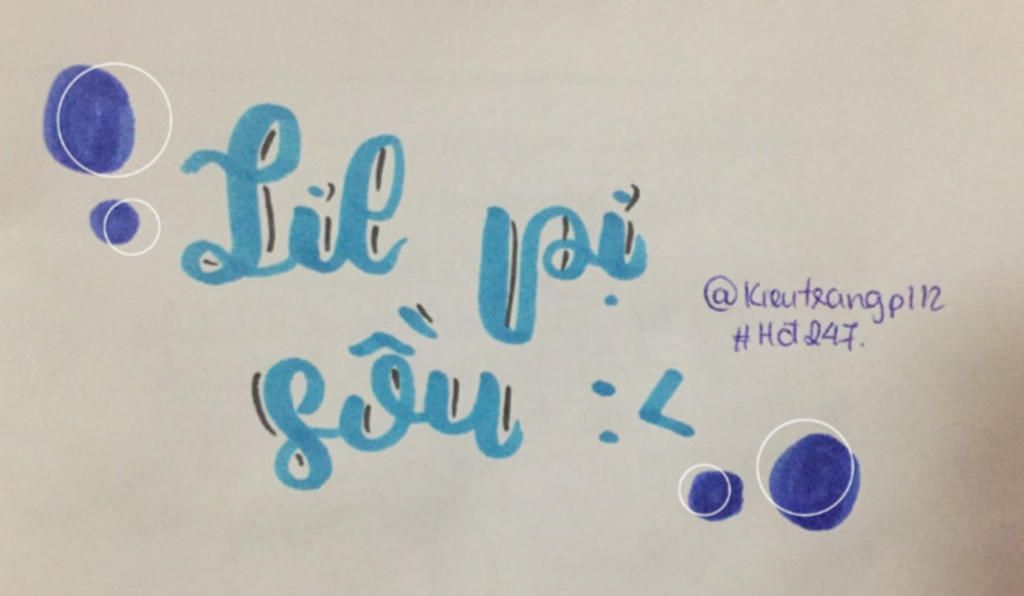 Lil pị
sồu :<
@kieutrangp112
#Hđ247.